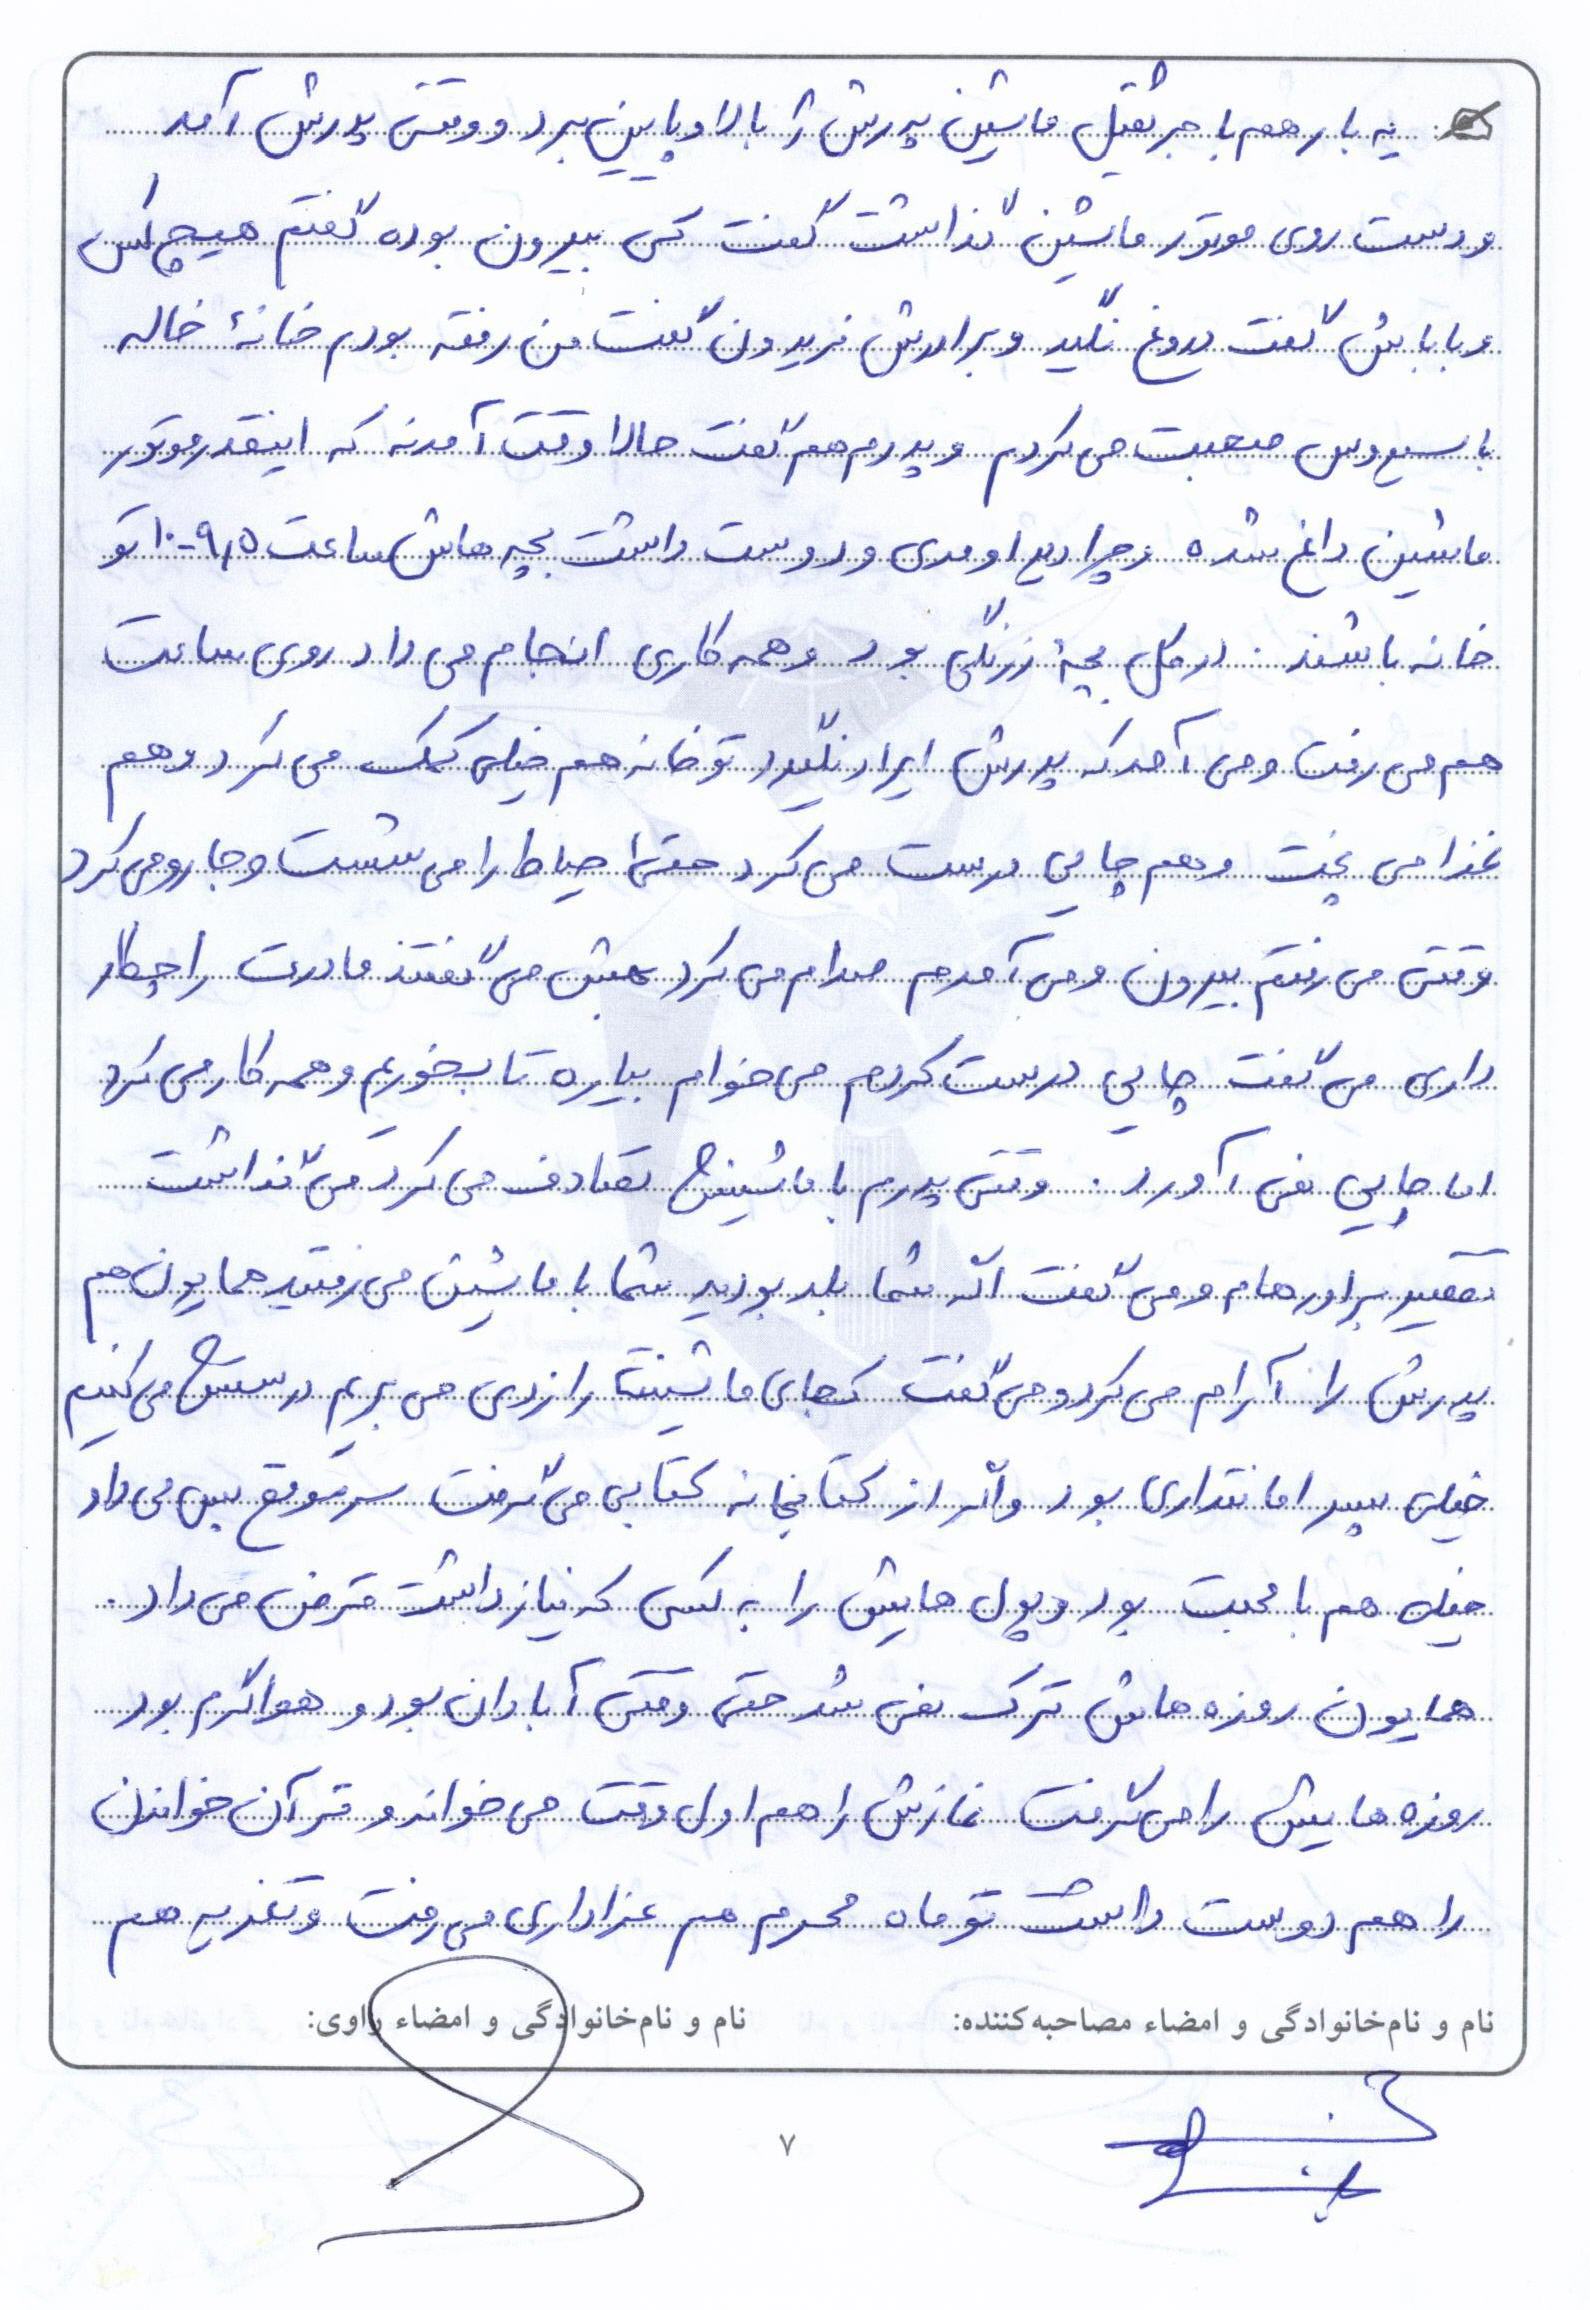 یه بار هم با جرثقیل ماشین پدرش را بالا و پایین برد و وقتی پدرش آمد
و دست روی موتور ماشین گذاشت گفت کی بیرون بوده گفتم هیچ کس
و باباش گفت دروغ نگید و برادرش فریدون گفت من رفته بودم خانهٔ خاله
با سیروس صحبت می کردم و پدرم هم گفت حالا وقت آمدنه که اینقدر موتور
ماشین داغ شده و چرا دیر اومدی و دوست داشت بچه هاش ساعت ۹٫۵-۱۰ تو
خانه باشند. در کل بچهٔ زرنگی بود و همه کاری انجام می داد روی ساعت
هم می رفت و می آمد که پدرش ایراد نگیرد تو خانه هم خیلی کمک می کرد و هم
غذا می پخت و هم چایی درست می کرد حتی حیاط را می شست و جارو می کرد
وقتی می رفتم بیرون و می آمدم صدام می کرد بهش می گفتند مادرت را چکار
داری می گفت چایی درست کردم می خوام بیاره تا بخوریم و همه کار می کرد
اما چایی نمی آورد. وقتی پدرم با ماشینش تصادف می کرد می گذاشت
تقصیر برادرهام و می گفت اگه شما بلد بودید شما با ماشین می رفتید همایون هم
پدرش را آرام می کرد و می گفت کجای ماشینت را زدی می بریم درستش می کنیم
خیلی پسر امانتداری بود و اگه از کتابخانه کتابی می گرفت سر موقع پس می داد
خیلی هم با محبت بود و پول هایش را به کسی که نیاز داشت قرض می داد.
همایون روزه هاش ترک نمی شد حتی وقتی آبادان بود و هوا گرم بود
روزه هایش را می گرفت نمازش را هم اول وقت می خواند و قرآن خواندن
را هم دوست داشت تو ماه محرم هم عزاداری می رفت و تعزیه هم
نام و نام‌خانوادگی و امضاء مصاحبه‌کننده: نام و نام‌خانوادگی و امضاء راوی:
۷